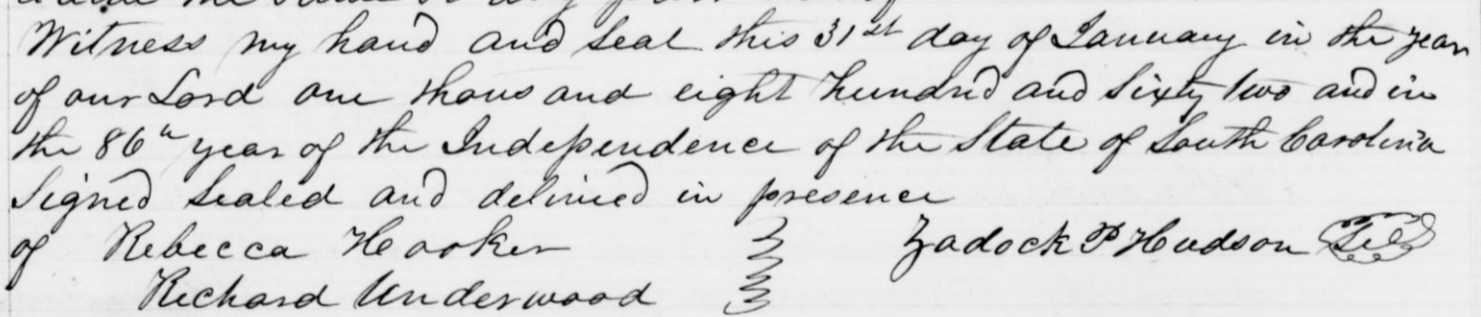 Witness my hand and seal this 31st day of January in the year
of our Lord one thousand eight hundred and sixty two and in
the 86th year of the Independence of the State of South Carolina
Signed sealed and delivered in presence
of Rebecca Hooker Zadock P Hudson Seal
Richard Underwood